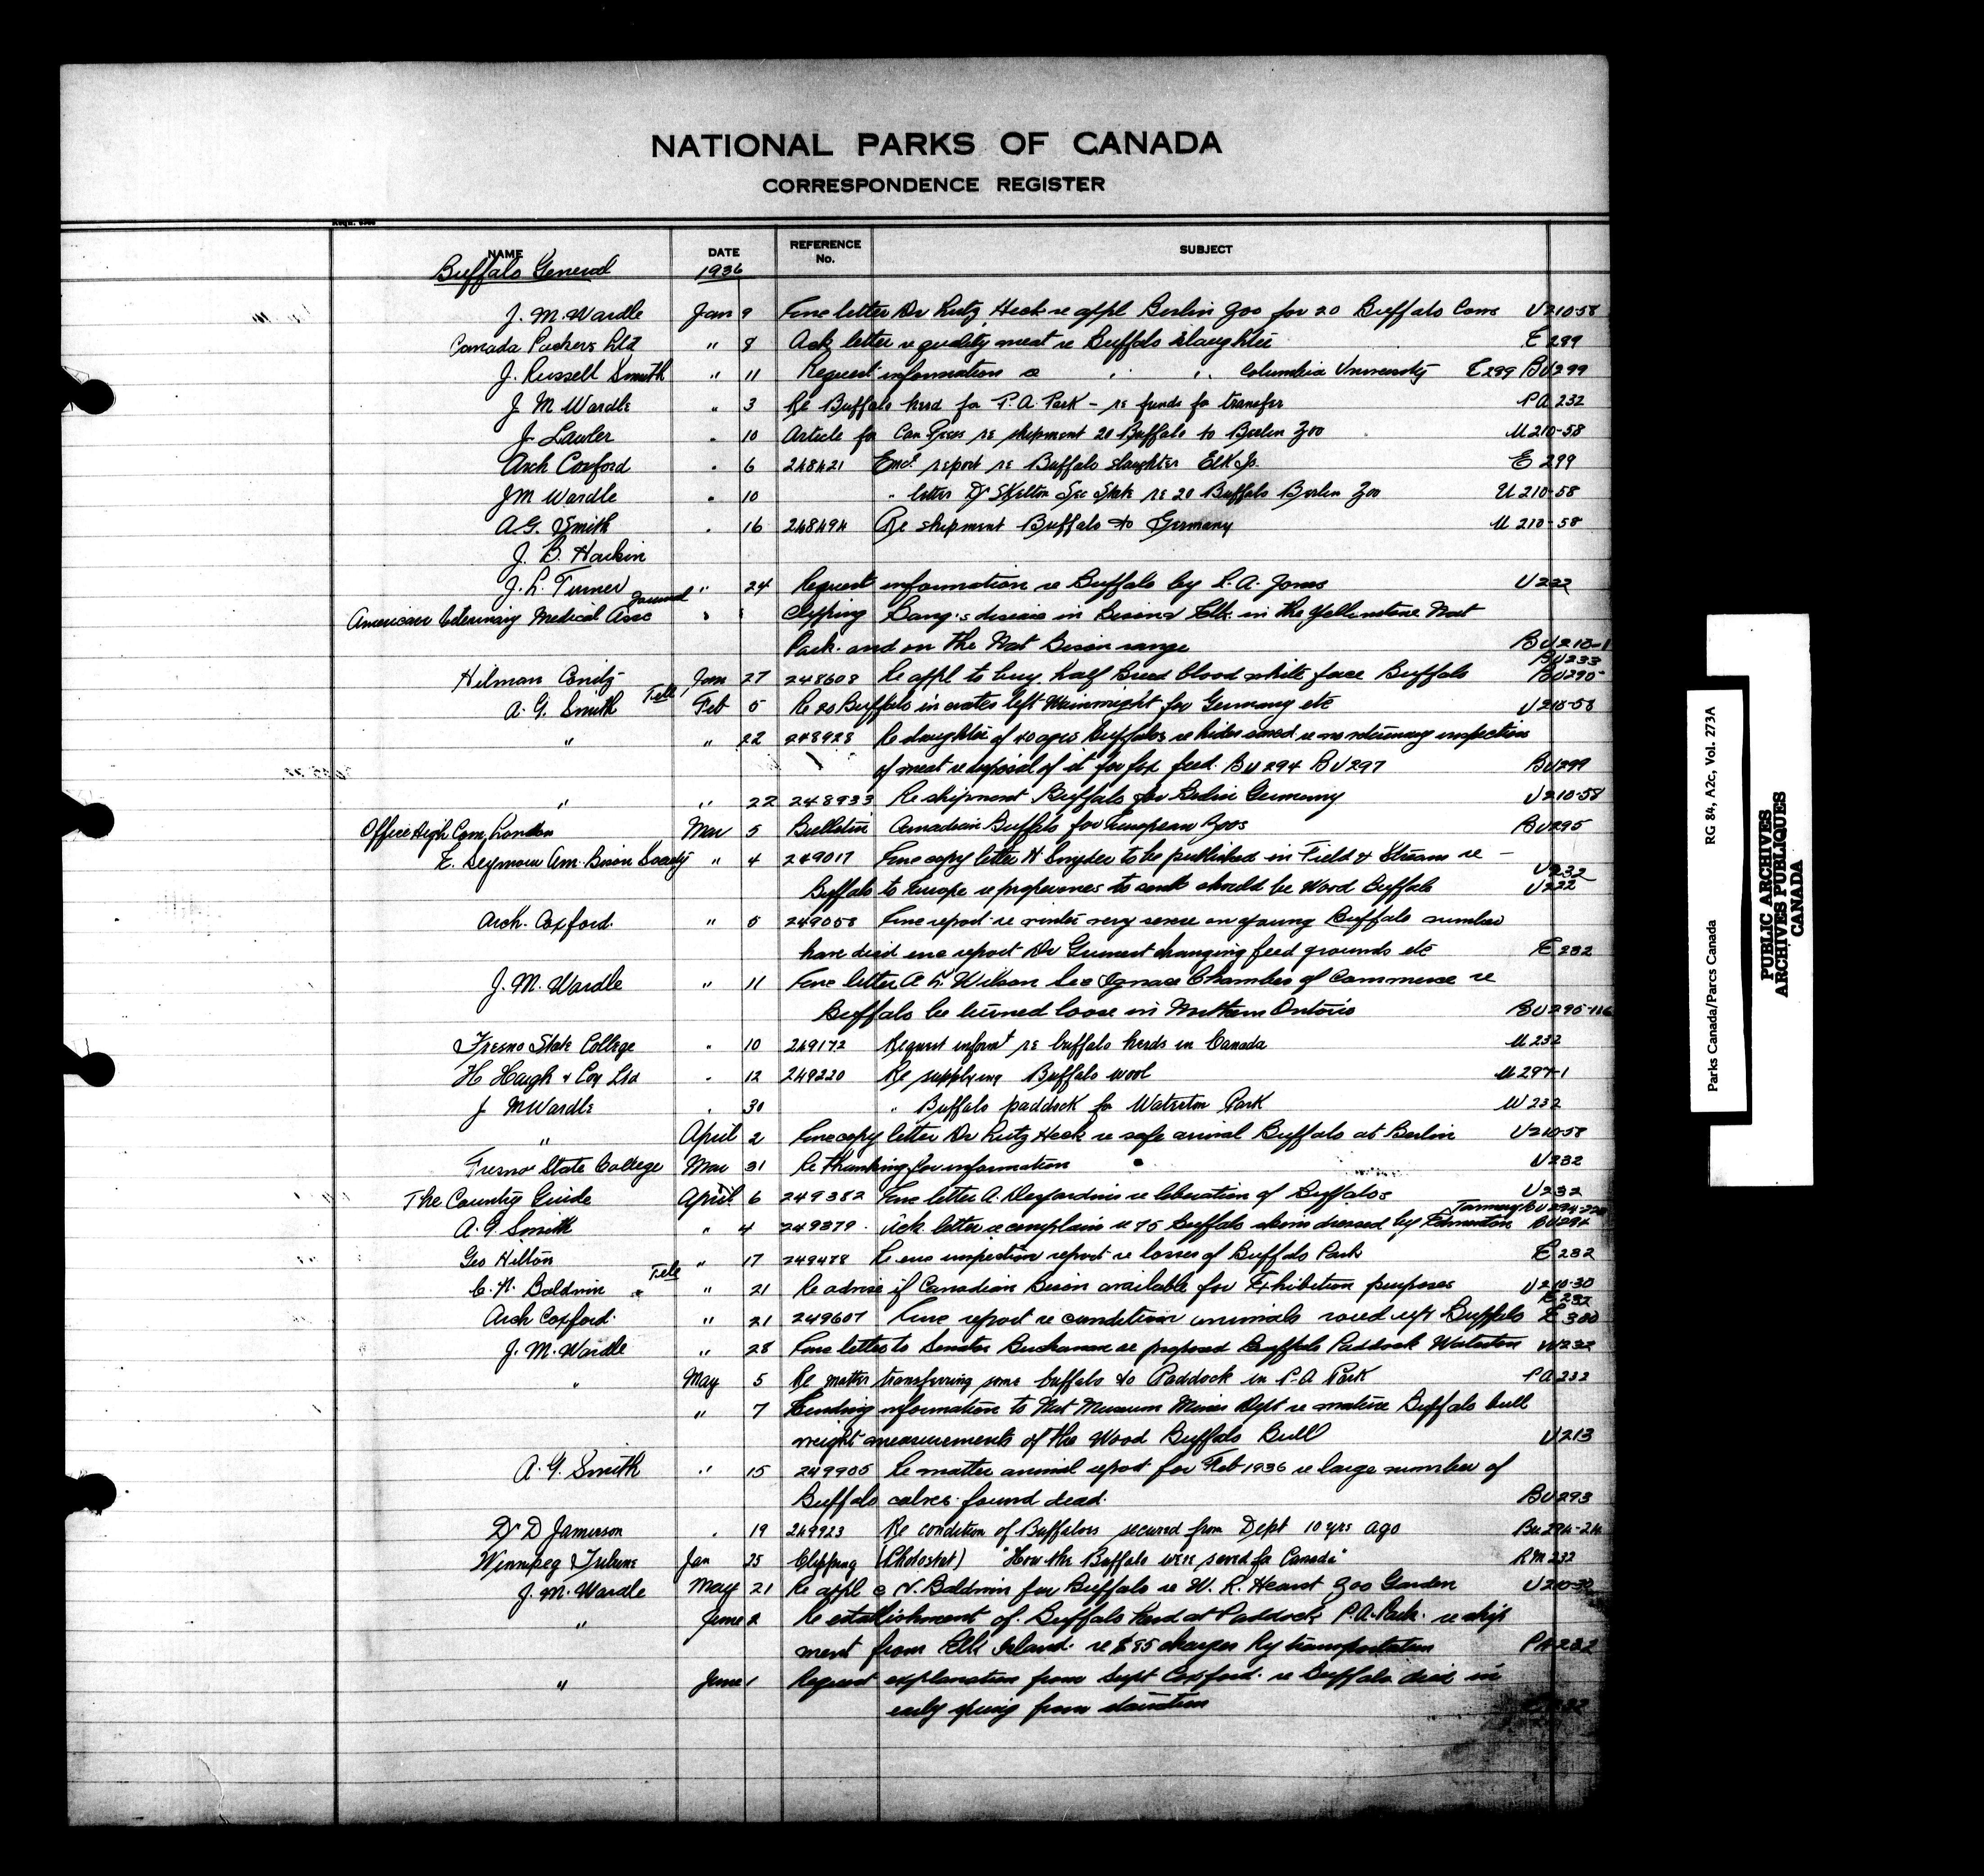 NATIONAL PARKS OF CANADA
CORRESPONDENCE REGISTER
NAME DATE REFERENCE No. SUBJECT
Buffalo General 1936
J. M. Wardle Jan 9 Enc letter Dr Lutz Heck re appl Berlin Zoo for 20 Buffalo Cows U210-58
Canada Packers Ltd " 8 Ack letter re quality meat re Buffalo slaughter E299
J. Russell Smith " 11 Request information re " " Columbia University E299 BU299
J M Wardle " 3 Re Buffalo herd for P.A. Park - re funds for transfer PA 232
J. Lawler " 10 Article for Can Press re shipment 20 Buffalo to Berlin Zoo U210-58
Arch Coxford " 6 248421 Encl report re Buffalo slaughter Elk Is. E 299
JM Wardle " 10 " letter Dr Skelton Sec State re 20 Buffalo Berlin Zoo U210-58
A.G. Smith " 16 248494 Re shipment Buffalo to Germany U 210-58
J. B. Harkin
J. L. Turner " 24 Request information re Buffalo by L. A. Jones U232
American Veterinary Medical Assc Journal " Clipping Bang's disease in Bison & Elk in the Yellowstone Nat
Park and on the Nat Bison range BU210-1
BU233
Hilman Jan 27 248608 Re appl to buy half Breed blood white face Buffalo BU290
A. G. Smith Tele Feb 5 Re 20 Buffalo in crates left Wainwright for Germany etc U210-58
" " 22 248928 Re slaughter of 40 aged Buffalos re hides saved re no veterinary inspection
of meat re disposal of it for fox feed. BU294 BU297 BU299
" " 22 248933 Re shipment Buffalo for Berlin Germany U210-58
Office High Com London Mar 5 Bulletin Canadian Buffalo for European Zoos BU295
E. Seymour Am. Bison Society " 4 249017 Enc copy letter H Snyder to be published in Field & Stream re -
U232
Buffalo to Europe re to send should be Wood Buffalo U222
Arch. Coxford " 5 249058 Enc report re winter very severe on young Buffalo number
have died enc report Dr changing feed grounds etc E 232
J. M. Wardle " 11 Enc letter A. L. Wilson Sec Ignace Chamber of Commerce re
Buffalo be turned loose in Northern Ontario BU290-116
Fresno State College " 10 249172 Request informt re buffalo herds in Canada U 232
H Haigh & Coy Ltd " 12 249220 Re supplying Buffalo wool U297-1
J M Wardle " 30 " Buffalo paddock for Waterton Park W 232
" April 2 Enc copy letter Dr Lutz Heck re safe arrival Buffalo at Berlin U210-58
Fresno State College Mar 31 Re thanking for information U232
The Country Guide April 6 249382 Enc letter A. Desjardins re liberation of Buffalos U232
A. G. Smith " 4 249379 Ack letter re complain re 75 Buffalo skins dressed by Edmonton Tannery BU294
Geo Hilton " 17 249478 Re enc inspection report re losses of Buffalo Park E 232
C. N. Baldwin Tele " 21 Re advise if Canadian Bison available for Exhibition purposes U210-30
E 232
Arch Coxford " 21 249607 Enc report re condition animals round up & Buffalo E 300
J. M. Wardle " 28 Enc letter to Senator Buchanan re proposed Buffalo Paddock Waterton W232
" May 5 Re matter transferring some buffalo to Paddock in P.A Park PA232
" 7 Sending information to Nat Museum Mines Dept re mature Buffalo bull
weight measurements of the Wood Buffalo Bull U213
A. G. Smith " 15 249905 Re matter animal report for Feb 1936 re large number of
Buffalo calves found dead. BU293
Dr D Jamieson " 19 249923 Re condition of Buffaloes secured from Dept 10 yrs ago BU294-214
Winnipeg Tribune Jan 25 Clipping (Photostat) "How the Buffalo were saved for Canada" RM232
J. M. Wardle May 21 Re appl C N. Baldwin for Buffalo re W. R. Hearst Zoo Garden U210-30
" June 2 Re establishment of Buffalo herd at Paddock P.A. Park re ship
ment from Elk Island re $85 charges Ry transportation PA232
" June 1 Request explanation from Supt Coxford re Buffalo died in
early spring from starvation
Parks Canada/Parcs Canada RG 84, A2c, Vol. 273A
PUBLIC ARCHIVES
ARCHIVES PUBLIQUES
CANADA